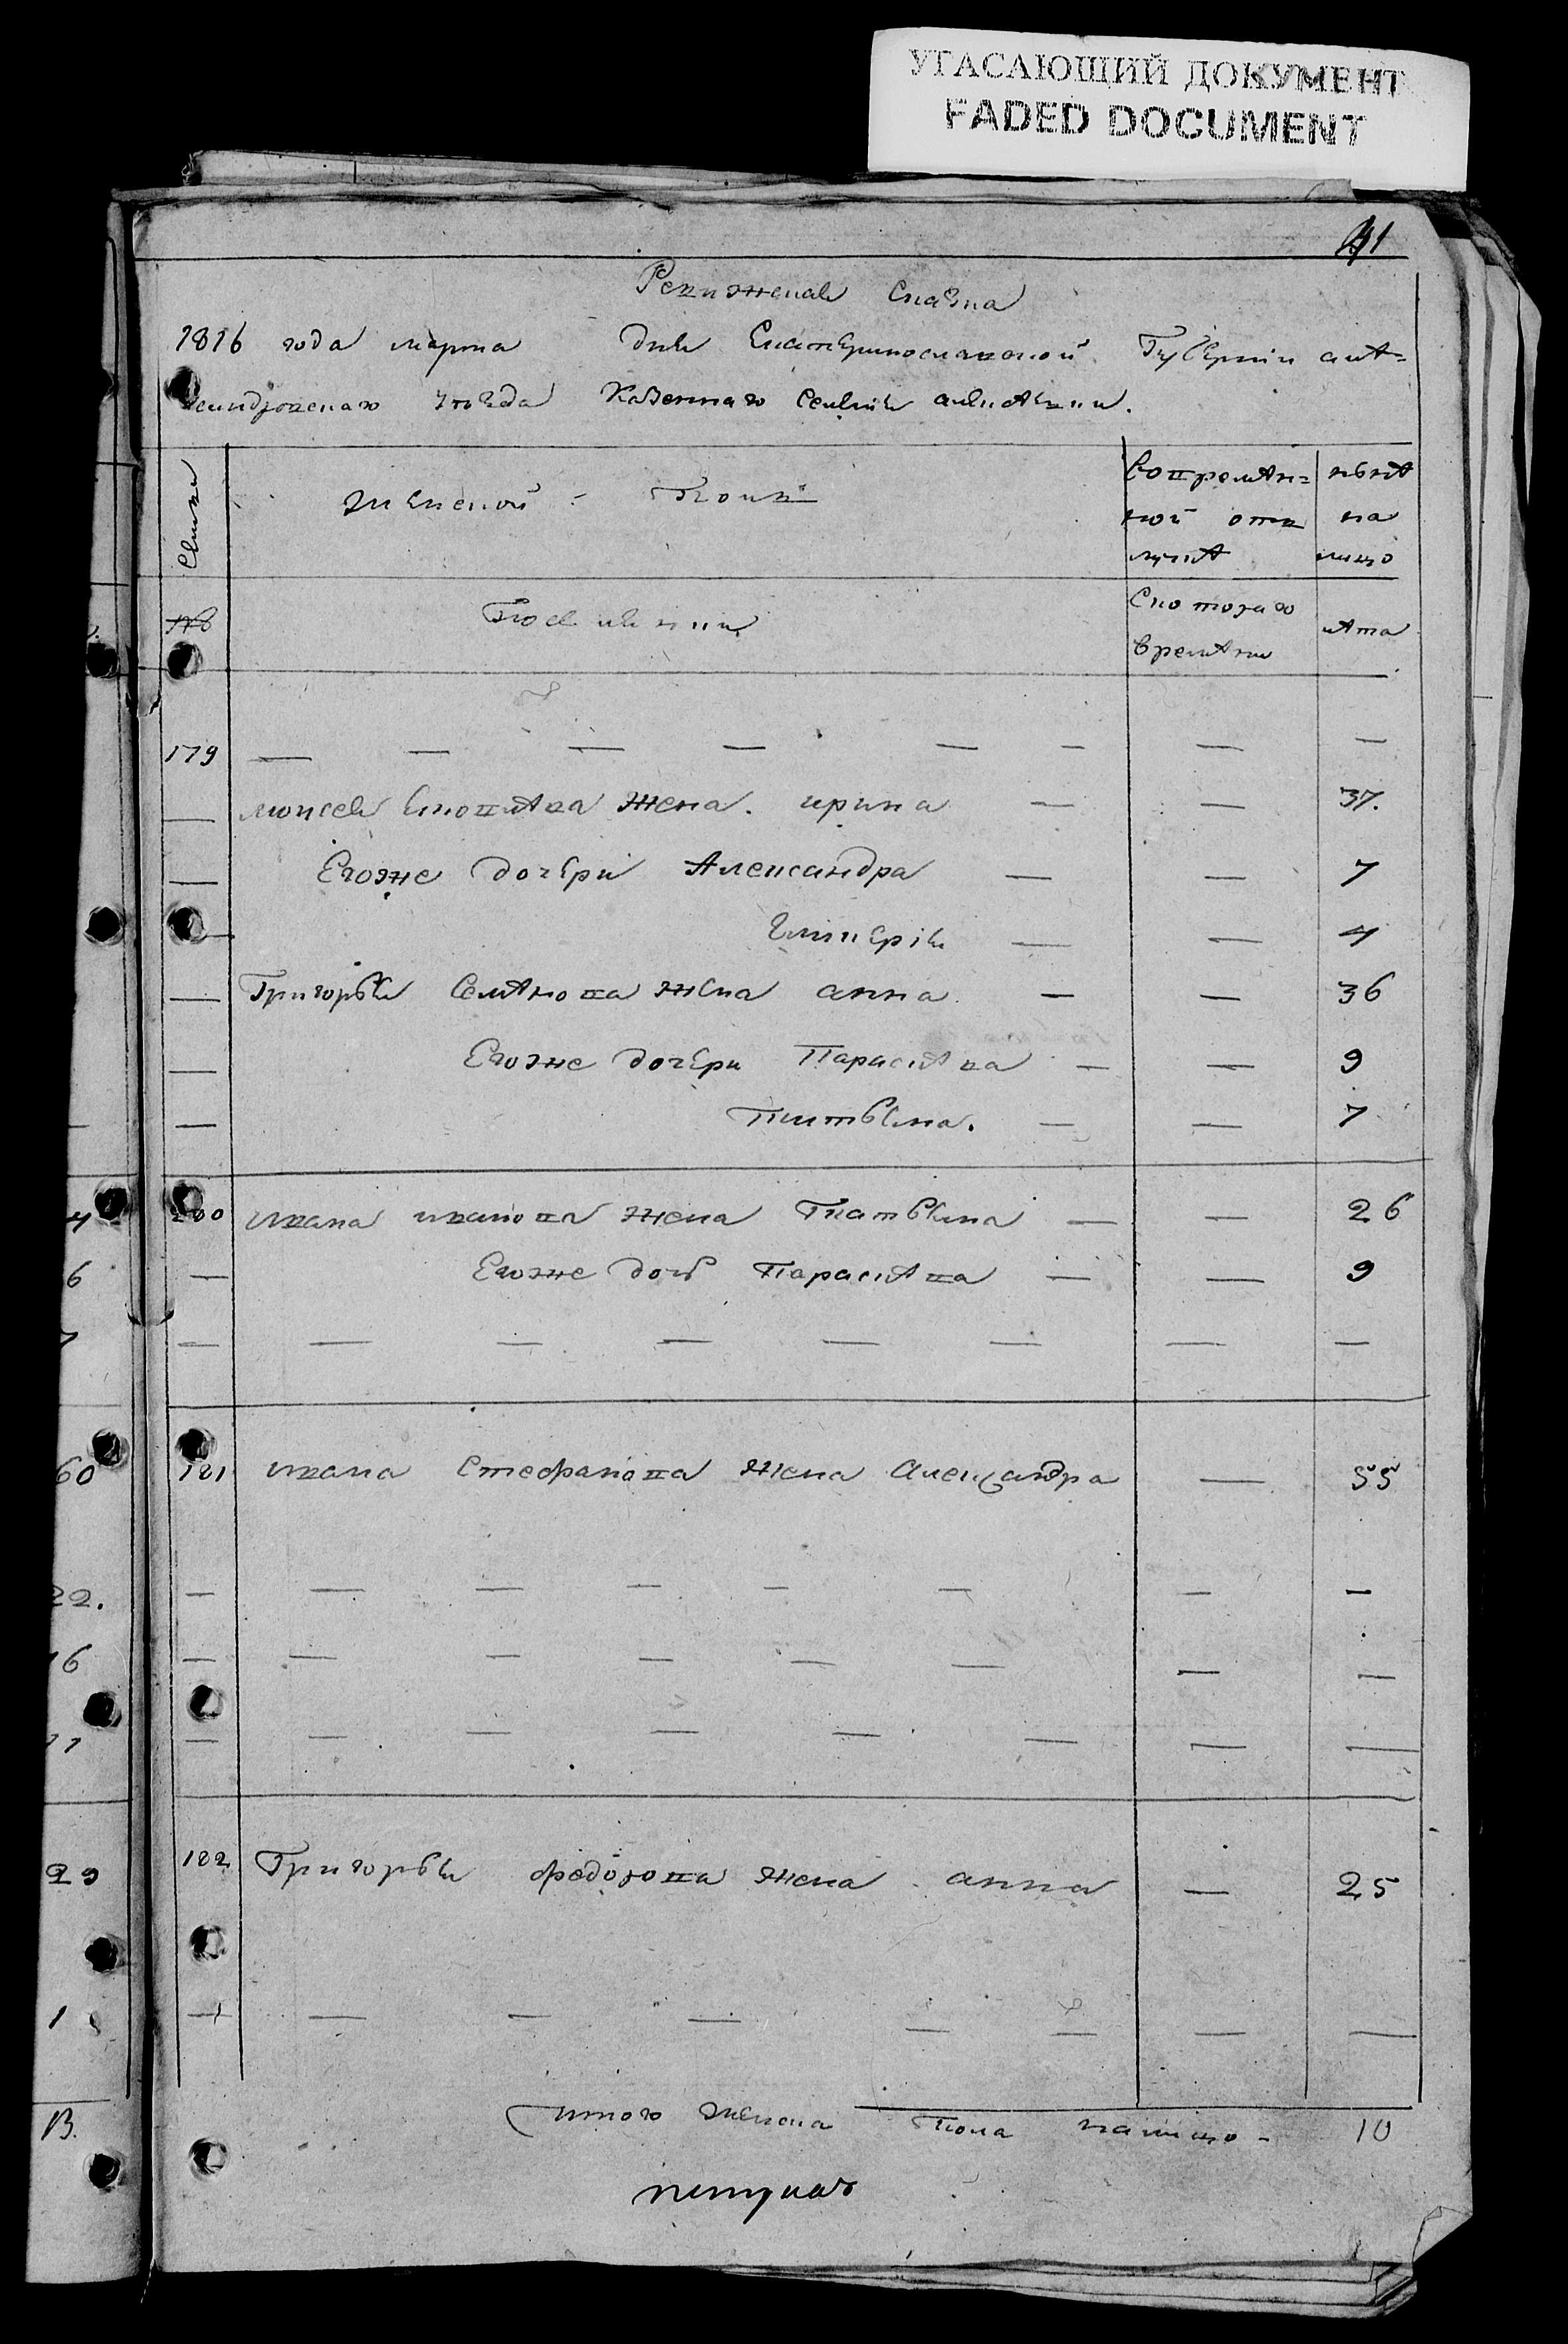 УГАСАЮЩИЙ ДОКУМЕНТ
FADED DOCUMENT
41
Ревижская Сказка
1816 года марта дня Екатеринославской Губернии але=
ксандровскаго уезда Казеннаго Селения
Семьи
женской Пол
Во времян=
ной отъ
лучке
ныне
на
лицо
№
Поселянки
Скотораго
времяни
лета
179
моисея жена ирина 37.
Егоже дочери Александра 7
Гликерія 4
Григорья Семенова жена анна 36
Егоже дочери Параскева 9
Татьяна. 7
180 ивана иванова жена Татьяна 26
Егоже дочь Параскева 9
181 ивана Стефанова жена Александра 55
182 Григорья федорова жена анна 25
итого женска пола налицо - 10
4
6
7
60
22.
16
11
29
1
13.